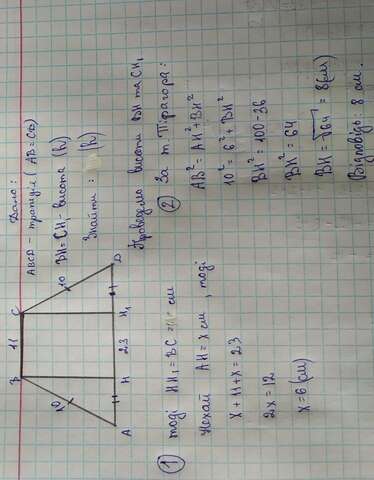 Дано:
ABCD - трапеція (AB = CD)
BH = CH₁ - висота (h)
Знайти: (h)
B 11 C
10 10
A H 23 H₁ D
Проведемо висоти BH та CH₁
① тоді HH₁ = BC = см
Нехай AH = x см, тоді
x + 11 + x = 23
2x = 12
x = 6 (см)
② За т. Піфагора:
AB² = AH² + BH²
10² = 6² + BH²
BH² = 100 - 36
BH² = 64
BH = √64 = 8 (см)
Відповідь: 8 см.